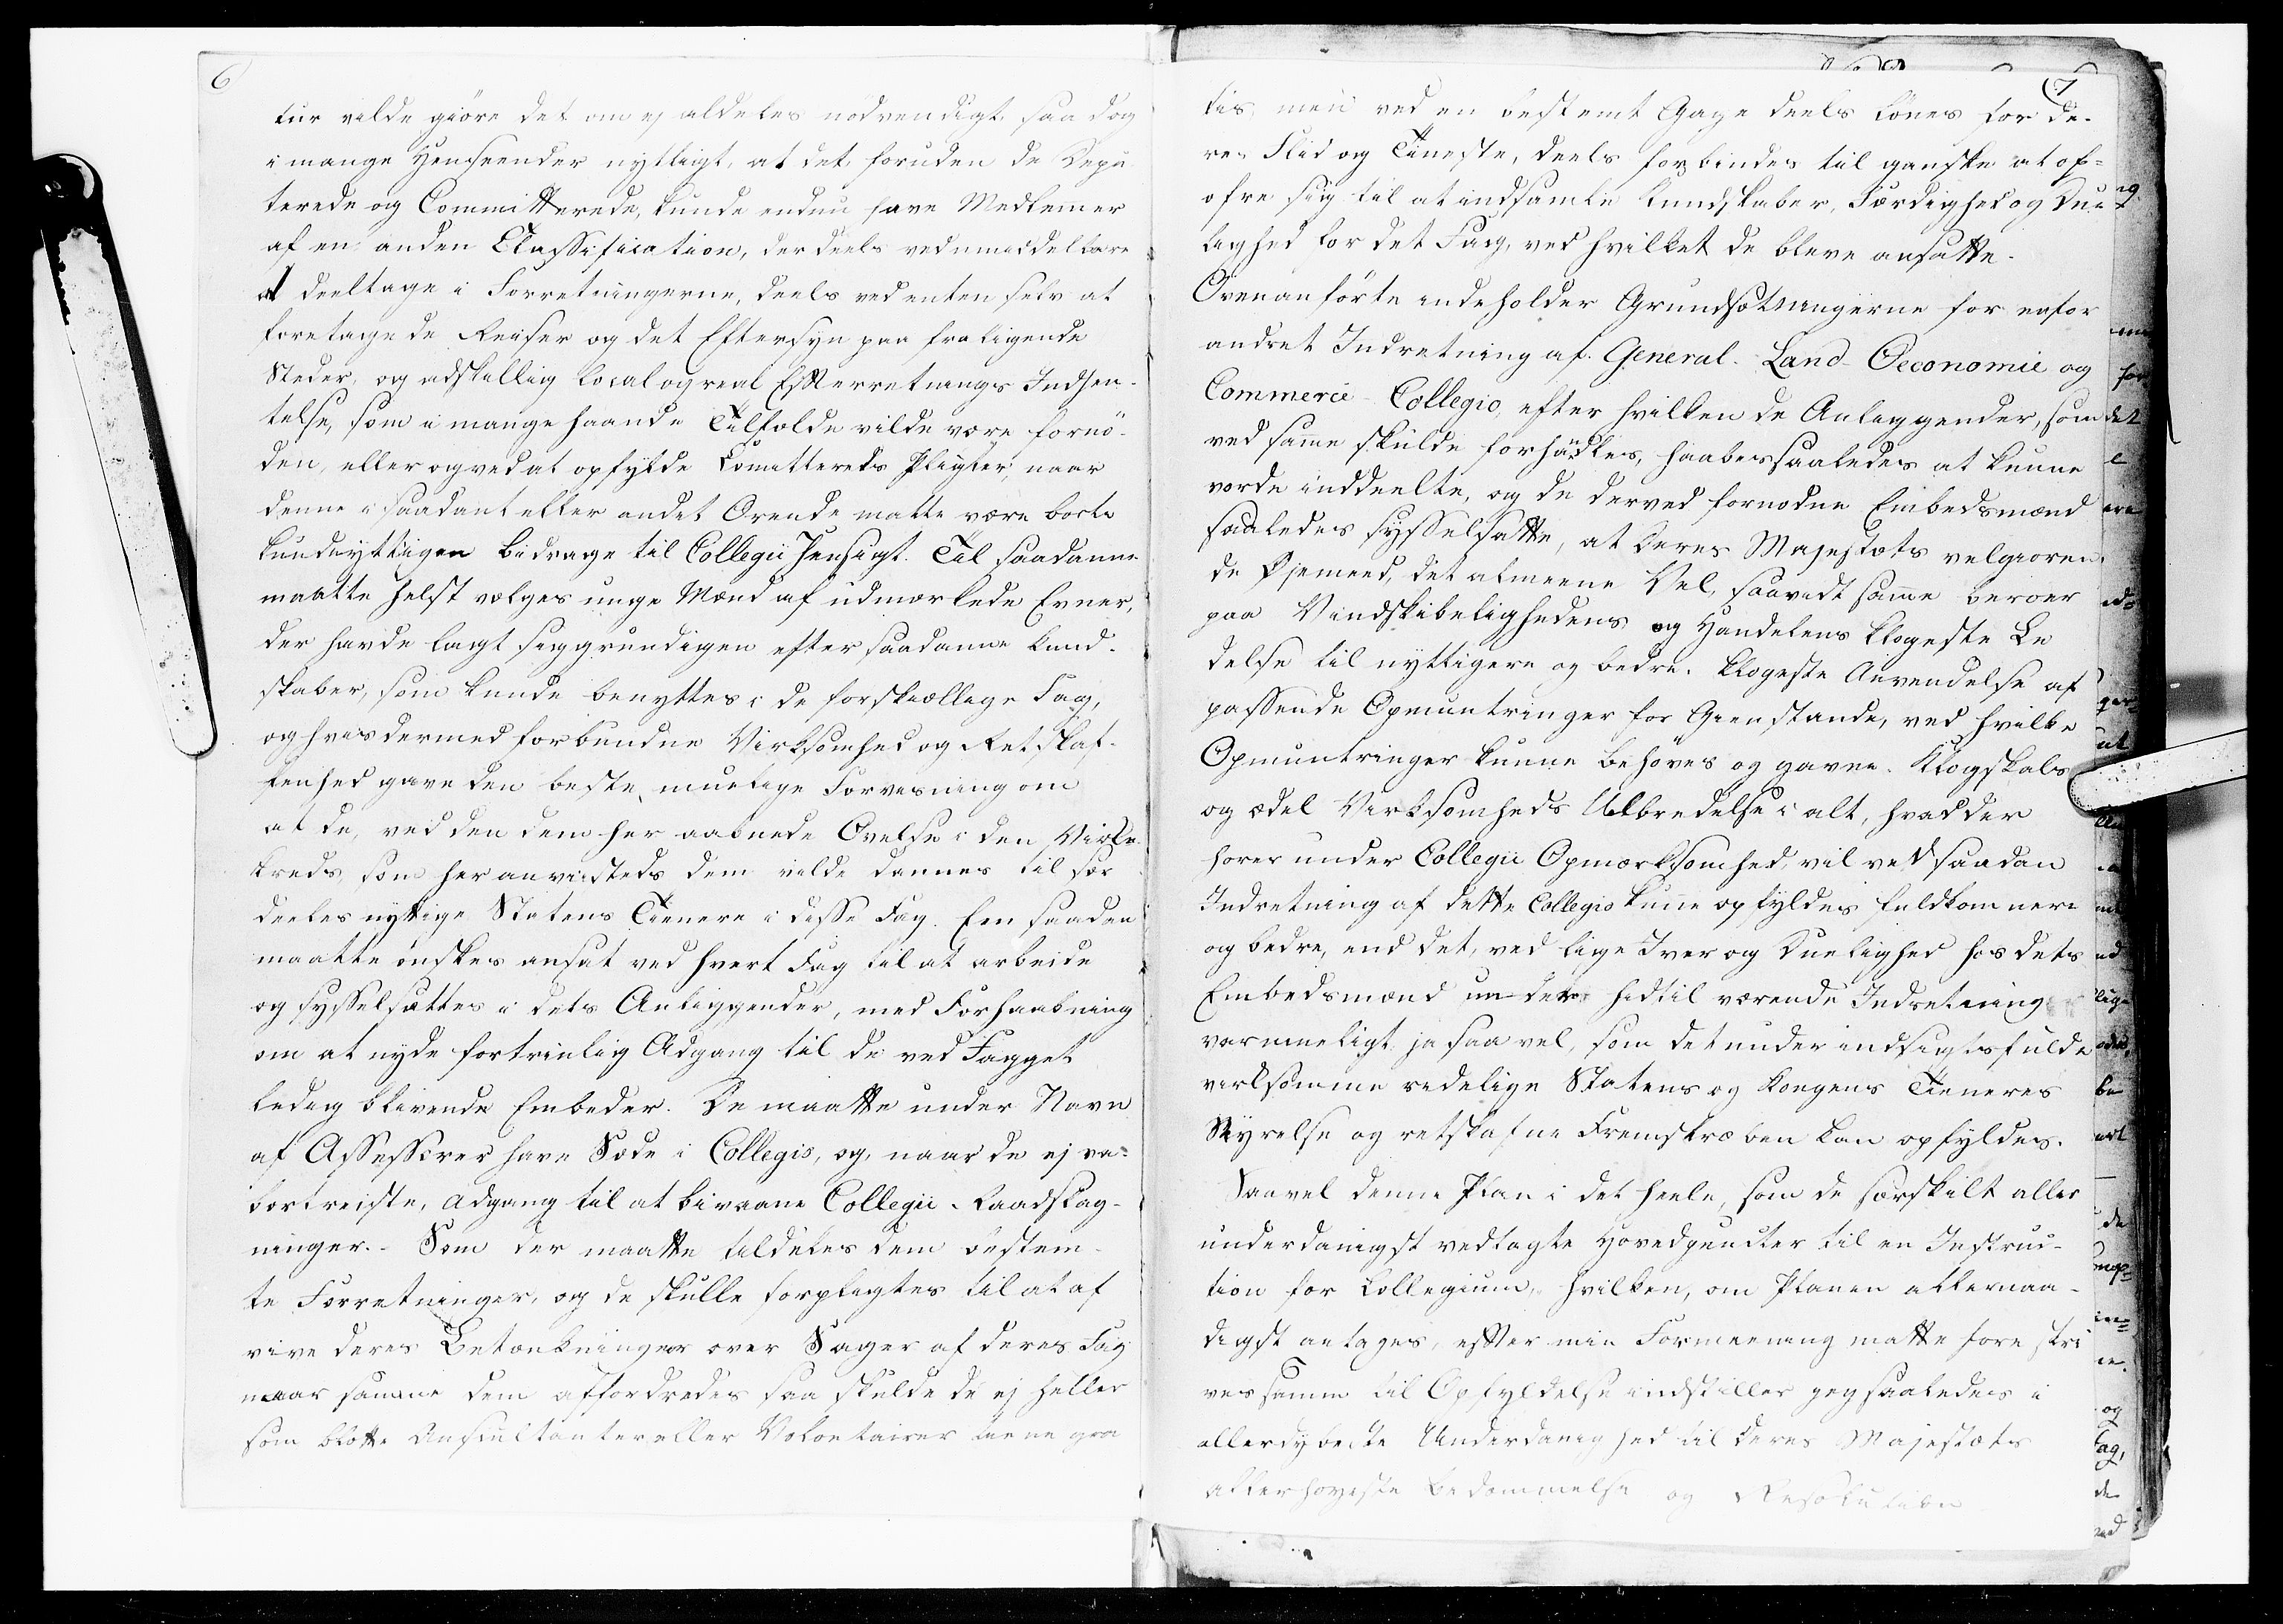 6
tur vilde giöre det om ej aldeles nödvendigt, saa dog
i mange Henseender nyttigt, at det, foruden de Depu
terede og Committerede, kunde endnu have Medlemer
af en anden Classification, der deels ved umiddelbare
at deeltage i Forretningerne, deels ved enten selv at
foretage de Reiser og det Eftersyn paa fraligende
Steder, og adskillig local og real Efterretnings Indhen-
telse, som i mange haande Tilfælde vilde være fornö-
den, eller og ved at opfylde Comittereds Pligter, naar
denne i saadant eller andet Ærende matte være borte
kunde nyttigen bidrage til Collegii Hensigt. Til saadanne
maatte helst vælges unge Mænd af udmærkede Evner,
der havde lagt sig grundigen efter saadanne Kund-
skaber, som kunde benyttes i de forskiællige Fag,
og hvis dermed forbundne Virksomhed og Retskaf-
fenhed gave den beste muelige Forvisning om
at de, ved den dem her aabnede Övelse i den Virke
kreds, som her anvistes dem vilde dannes til sær
deeles nyttige Statens Tienere i disse Fag. Een saadan
maatte önskes ansat ved hvert Fag til at arbeide
og sysselsættes i dets Anliggender, med Forhaabning
om at nyde fortrinlig Adgang til de ved Fagget
ledig blivende Embeder. De maatte under Navn
af Assessorer have Sæde i Collegio, og, naar de ej va=
bortreiste, Adgang til at bivaane Collegii Raadslag-
ninger. - Som der maatte tildeles dem bestem-
te Forretninger, og de skulle forpligtes til at af
give deres Betænkninger over Sager af deres Fag
naar samme dem affordredes saa skulde de ej heller
som blotte Auskultanter eller Volontairer tiene gra
7
tis, men ved en bestemt Gage deels lönes for de-
res Flid og Tieneste, deels forbindes til ganske at of=
ofre sig til at indsamle Kundskaber, Færdighed og Due
lighed for det Fag, ved hvilket de bleve ansatte.
Ovenanförte indeholder Grundsætningerne for en for
andret Indretning af General- Land- Oeconomie og
Commerce- Collegio, efter hvilken de Anliggender, som
ved same skulde forhandles, haabes saaledes at kunne
vorde inddeelte, og de derved fornødne Embedsmænd
saaledes sysselsatte, at Deres Majestæts velgiören
de Øjemeed, det almeene Vel, saavidt same beroer
paa Vindskibelighedens og Handelens klogeste Le
delse til nyttigere og bedre. klogeste Anvendelse af
passende Opmuntringer for Gienstande, ved hvilke
Opmuntringer kunne behöves og gavne. Klogskabs
og ædel Virksomheds Udbredelse i alt, hvad der
horer under Collegii Opmærksomhed, vil ved saadan
Indretning af dette Collegio kune opfyldes fuldkomnere
og bedre, end det, ved lige Iver og Duelighed hos dets
Embedsmænd under hidtil værende Indretning
var mueligt ja saa vel, som det under indsigtsfulde
virksomme redelige Statens og Kongens Tieneres
Styrelse og retskafne Fremstræben kan opfyldes.
Saavel denne Plan i det heele, som de særskilt aller
underdanigst vedlagte Hovedpuncter til en Instruc-
tion for Collegium, hvilken, om Planen allernaa-
digst antages, efter min Formeening matte fore skri
ves samme til Opfyldelse indstiller jeg saaledes i
allerdybeste Underdanighed til Deres Majestæts
allerhöieste Bedömmelse og Resolution